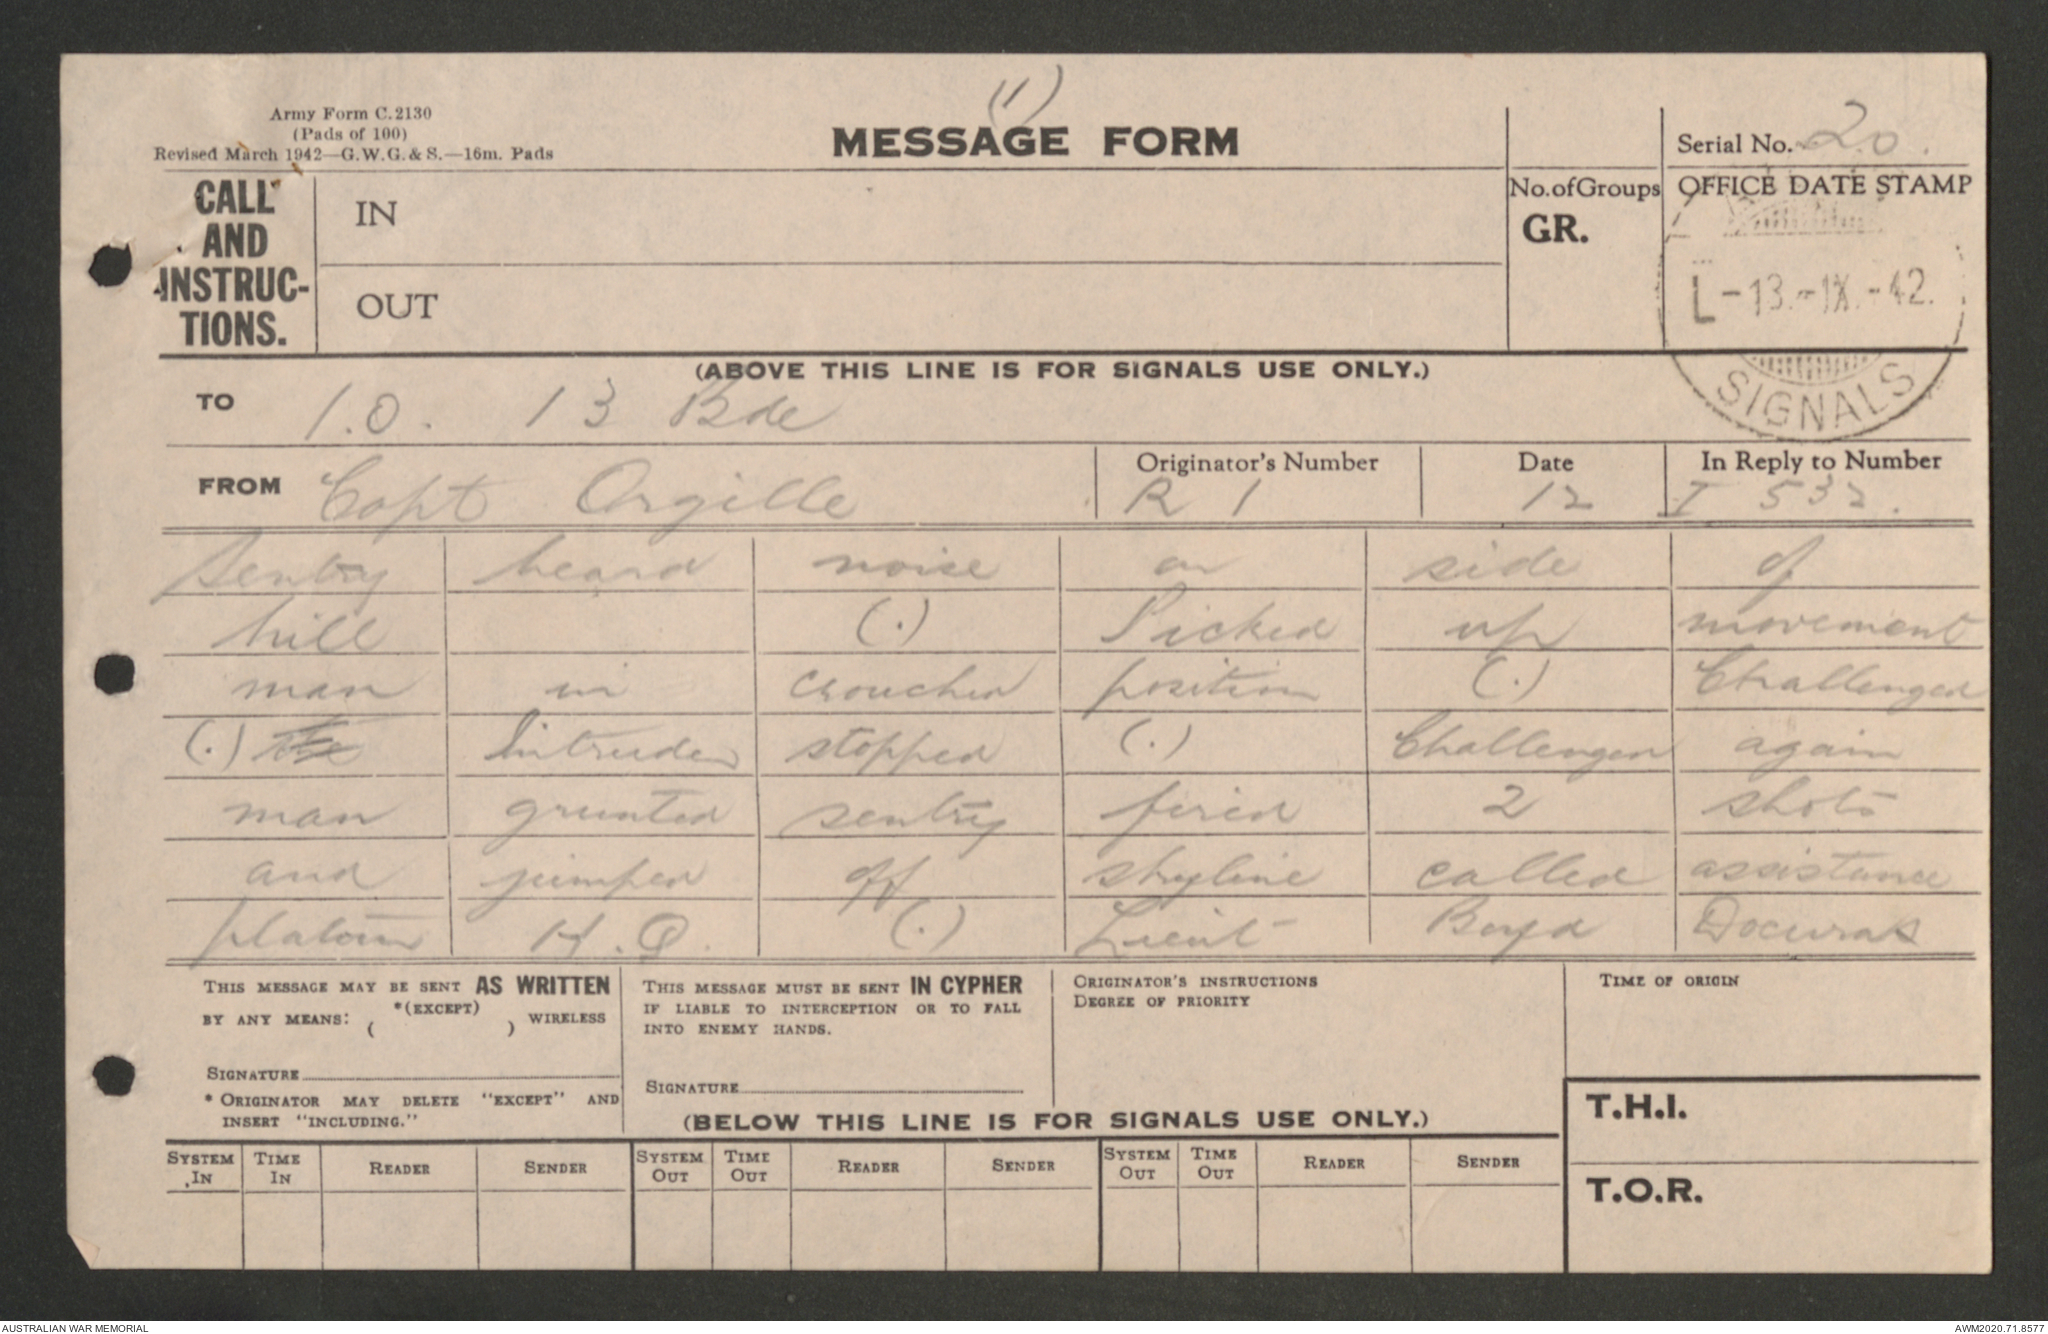 (1)
Army Form C.2130
(Pads of 100)
Revised March 1942—G.W.G.& S.—16m. Pads
MESSAGE FORM
Serial No. 20.
CALL
AND
INSTRUC-
TIONS.
IN
OUT
No.of Groups
GR.
OFFICE DATE STAMP
L -13.-IX.-42.
SIGNALS
(ABOVE THIS LINE IS FOR SIGNALS USE ONLY.)
TO 1.O. 13 Bde
FROM Capt Orgille
Originator's Number R 1
Date 12
In Reply to Number I 532.
Sentry heard noise on side of
hill (.) Picked up movement
man in crouched position (.) Challenged
(.) the Intruder stopped (.) Challenged again
man grunted sentry fired 2 shots
and jumped off skyline called assistance
platoon H.Q. (.) Lieut Boyd
THIS MESSAGE MAY BE SENT AS WRITTEN
BY ANY MEANS: *(EXCEPT) ( ) WIRELESS
SIGNATURE
* ORIGINATOR MAY DELETE "EXCEPT" AND
INSERT "INCLUDING."
THIS MESSAGE MUST BE SENT IN CYPHER
IF LIABLE TO INTERCEPTION OR TO FALL
INTO ENEMY HANDS.
SIGNATURE
ORIGINATOR'S INSTRUCTIONS
DEGREE OF PRIORITY
TIME OF ORIGIN
(BELOW THIS LINE IS FOR SIGNALS USE ONLY.)
T.H.I.
T.O.R.
SYSTEM IN TIME IN READER SENDER SYSTEM OUT TIME OUT READER SENDER SYSTEM OUT TIME OUT READER SENDER
AUSTRALIAN WAR MEMORIAL
AWM2020.71.8577